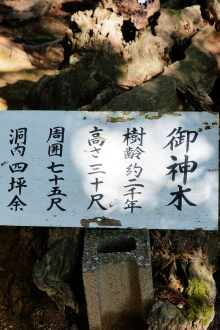 御神木
樹齢約二千年
高さ三十尺
周囲七十五尺
洞内四坪余